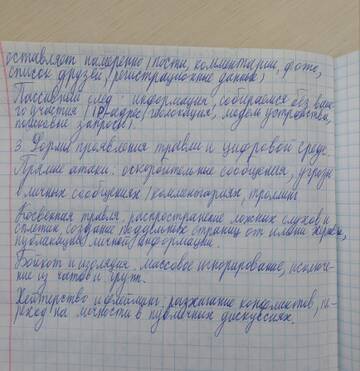 оставляет намеренно (посты, комментарии, фото,
список друзей, регистрационные данные)
Пассивный след - информация, собираемая без ваше-
го участия (IP-адрес, геолокация, модель устройства,
поисковые запросы).
3. Формы проявления травли в цифровой среде.
Прямые атаки: оскорбительные сообщения, угрозы
в личных сообщениях/комментариях, троллинг
Косвенная травля: распространение ложных слухов и
сплетен, создание поддельных страниц от имени жертвы,
публикация личной информации.
Бойкот и изоляция: массовое игнорирование, исключе-
ние из чатов и групп.
Хейтерство и флейминг: разжигание конфликтов, пе-
реход на личности в публичных дискуссиях.